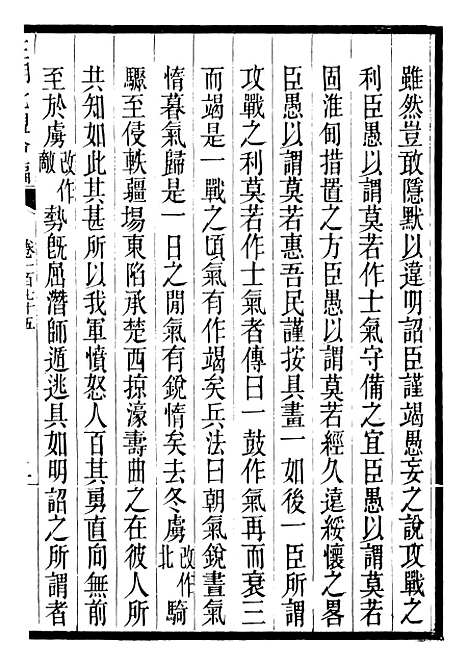 雖然豈敢隱默以違明詔臣謹竭愚妄之說攻戰之
利臣愚以謂莫若作士氣守備之宜臣愚以謂莫若
固淮甸措置之方臣愚以謂莫若經久遠綏懷之畧
臣愚以謂莫若惠吾民謹按具畫一如後一臣所謂
攻戰之利莫若作士氣者傳曰一鼓作氣再而衰三
而竭是一戰之頃氣有作竭矣兵法曰朝氣銳晝氣
惰暮氣歸是一日之閒氣有銳惰矣去冬虜改作北騎
驟至侵軼疆場東陷承楚西掠濠壽曲之在彼人所
共知如此其甚所以我軍憤怒人百其勇直向無前
至於虜改作敵勢旣屈潛師遁逃具如明詔之所謂者
三朝北盟會編
卷一百七十五